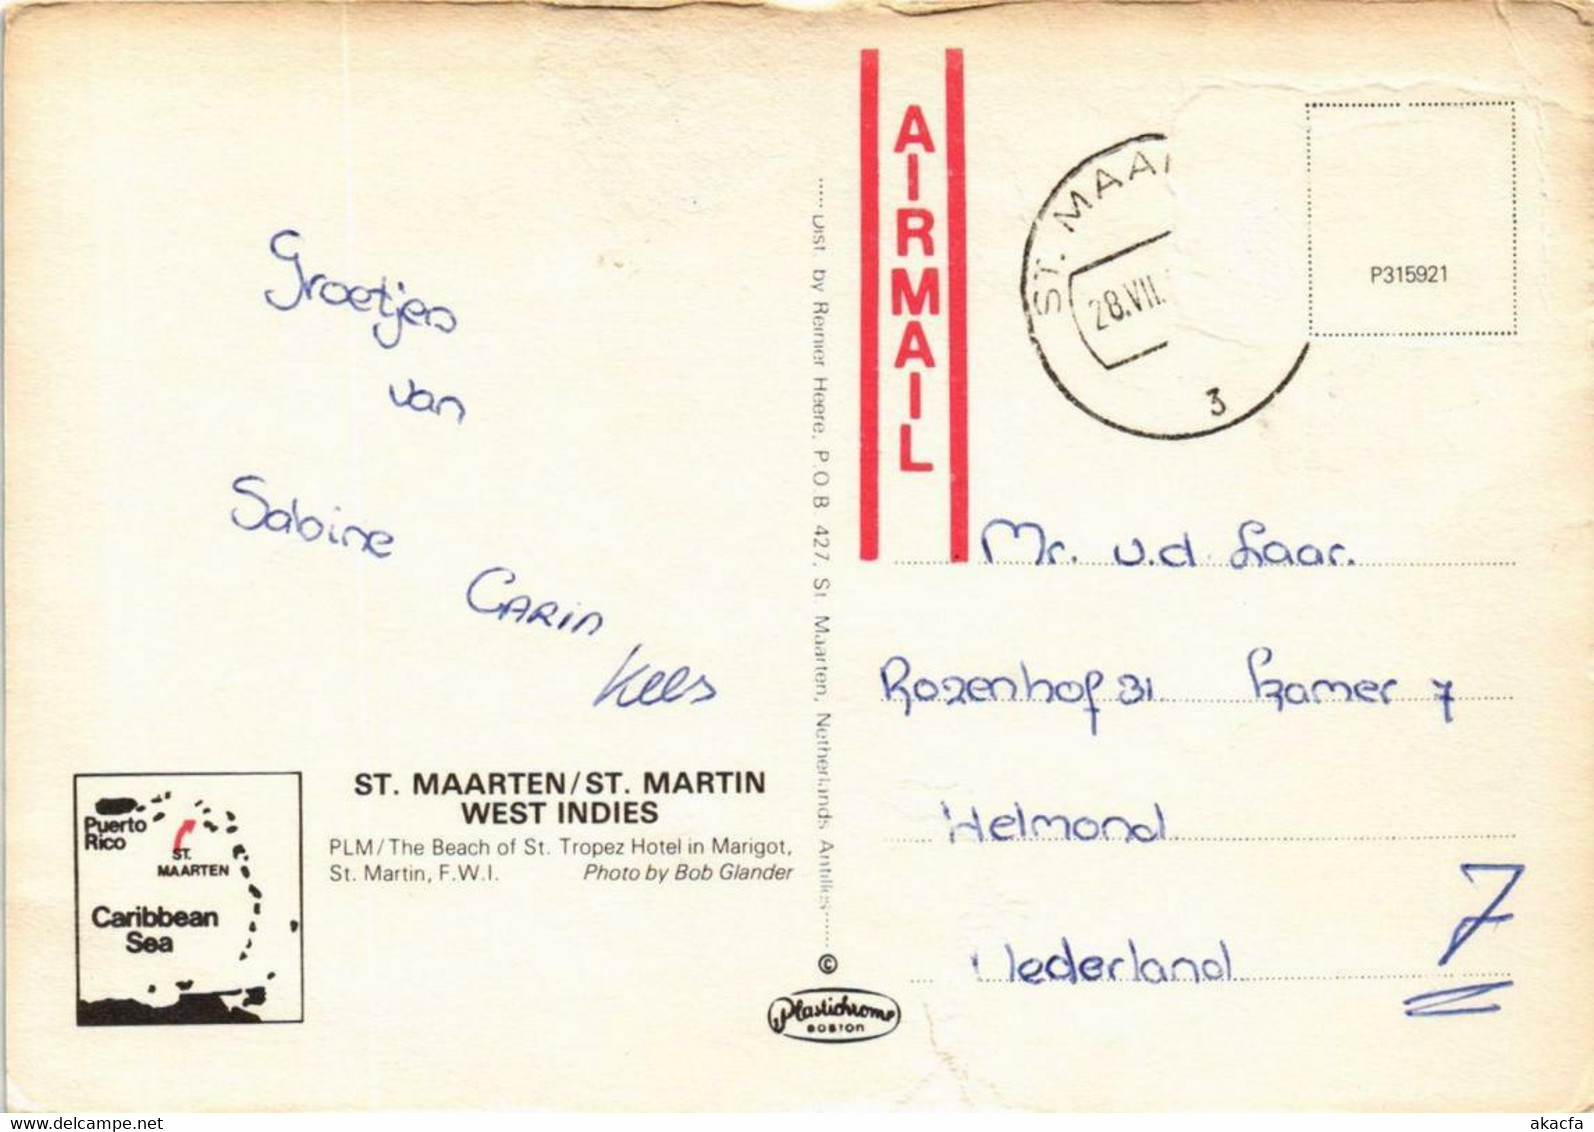 Groetjes
van
Sabine
CARin
Kees
ST. MAARTEN/ST. MARTIN
WEST INDIES
PLM/The Beach of St. Tropez Hotel in Marigot,
St. Martin, F.W.I. Photo by Bob Glander
Puerto
Rico
ST.
MAARTEN
Caribbean
Sea
Dist. by Reinier Heere, P.O.B. 427, St. Maarten, Netherlands Antilles
©
Plastichrome
BOSTON
AIRMAIL
ST. MAA
28.VII.
3
P315921
Mr. v.d. Laar.
Rozenhof 31 kamer 7
Helmond
Nederland
7
www.delcampe.net
akacfa